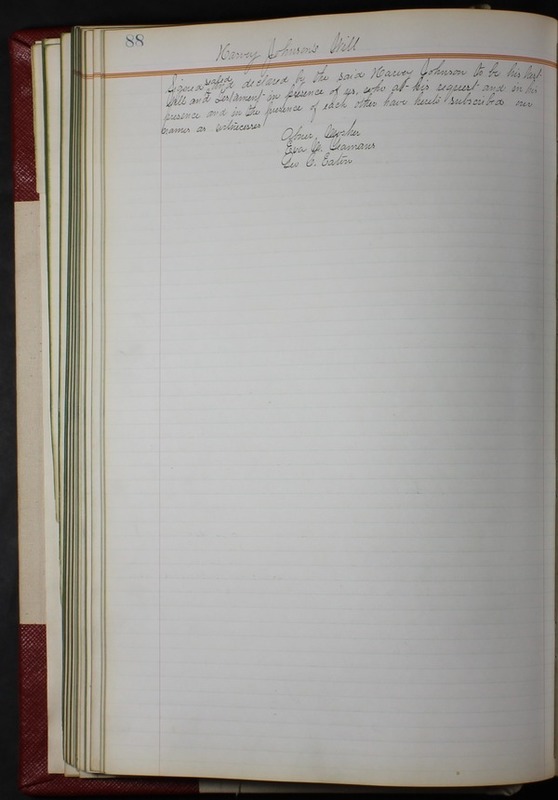 88
Harvey Johnson's Will
Signed sealed and declared by the said Harvey Johnson to be his last
Will and Testament in presence of us, who at his request and in his
presence and in the presence of each other have hereto subscribed our
names as witnesses
Abner Mosher
Eva M.
Geo C. Eaton